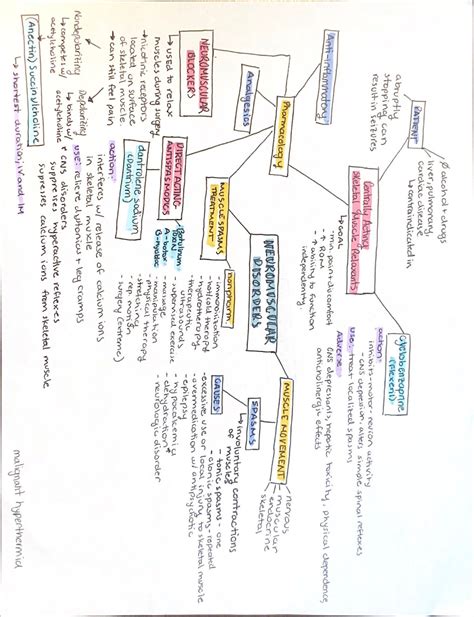 NEUROMUSCULAR
DISORDERS
MUSCLE MOVEMENT
- nervous
- muscular
- endocrine
- skeletal
SPASMS
↳ involuntary contractions
of muscles
- tonic spasms - one
- clonic spasms - repeated
CAUSES
- excessive use or local injury to skeletal muscle
- overmedication w/ antipsychotic
- epilepsy
- hypocalcemia
- dehydration
- neurologic disorder
MUSCLE SPASMS
TREATMENT
nonpharm.
- immobilization
- hot/cold therapy
- hydrotherapy
- ultrasounds
- therapeutic
- supervised exercise
- massage
- manipulation
- physical therapy
- stretching
- surgery (extreme)
Pharmacology
Anti-inflammatory
Analgesics
Centrally Acting
Skeletal Muscle Relaxants
↳ GOAL
- ↓ pain + discomfort
- ↑ ROM
- ↑ ability to function
independently
PATIENT
∅ alcohol + drugs
liver, pulmonary,
cardiac disease
↳ contraindicated in
abruptly
stopping can
result in seizures
Cyclobenzaprine
(Flexeril)
action:
inhibits motor neuron activity
- CNS depression, alters simple spinal reflexes
use: treat localized spasms
Adverse:
CNS depressants, hepatic toxicity, physical dependence
anticholinergic effects
DIRECT ACTING
ANTISPASMODICS
Botulinum
Toxins
A-botox
dantrolene sodium
(dantrium)
action:
interferes w/ release of calcium ions
in skeletal muscle
use: relieve dystonias + leg cramps
↳ CNS disorders
suppresses hyperactive reflexes
supresses calcium ions from skeletal muscle
NEUROMUSCULAR
BLOCKERS
↳ used to relax
muscles during surgery
↳ nicotinic receptors
located on surface
of skeletal muscle
↳ can still feel pain
Nondepolarizing
↳ competes w/
acetylcholine
Depolarizing
↳ binds w/
acetylcholine
(Anectin) Succinylcholine
↳ shortest duration, IV and IM
malignant hyperthermia